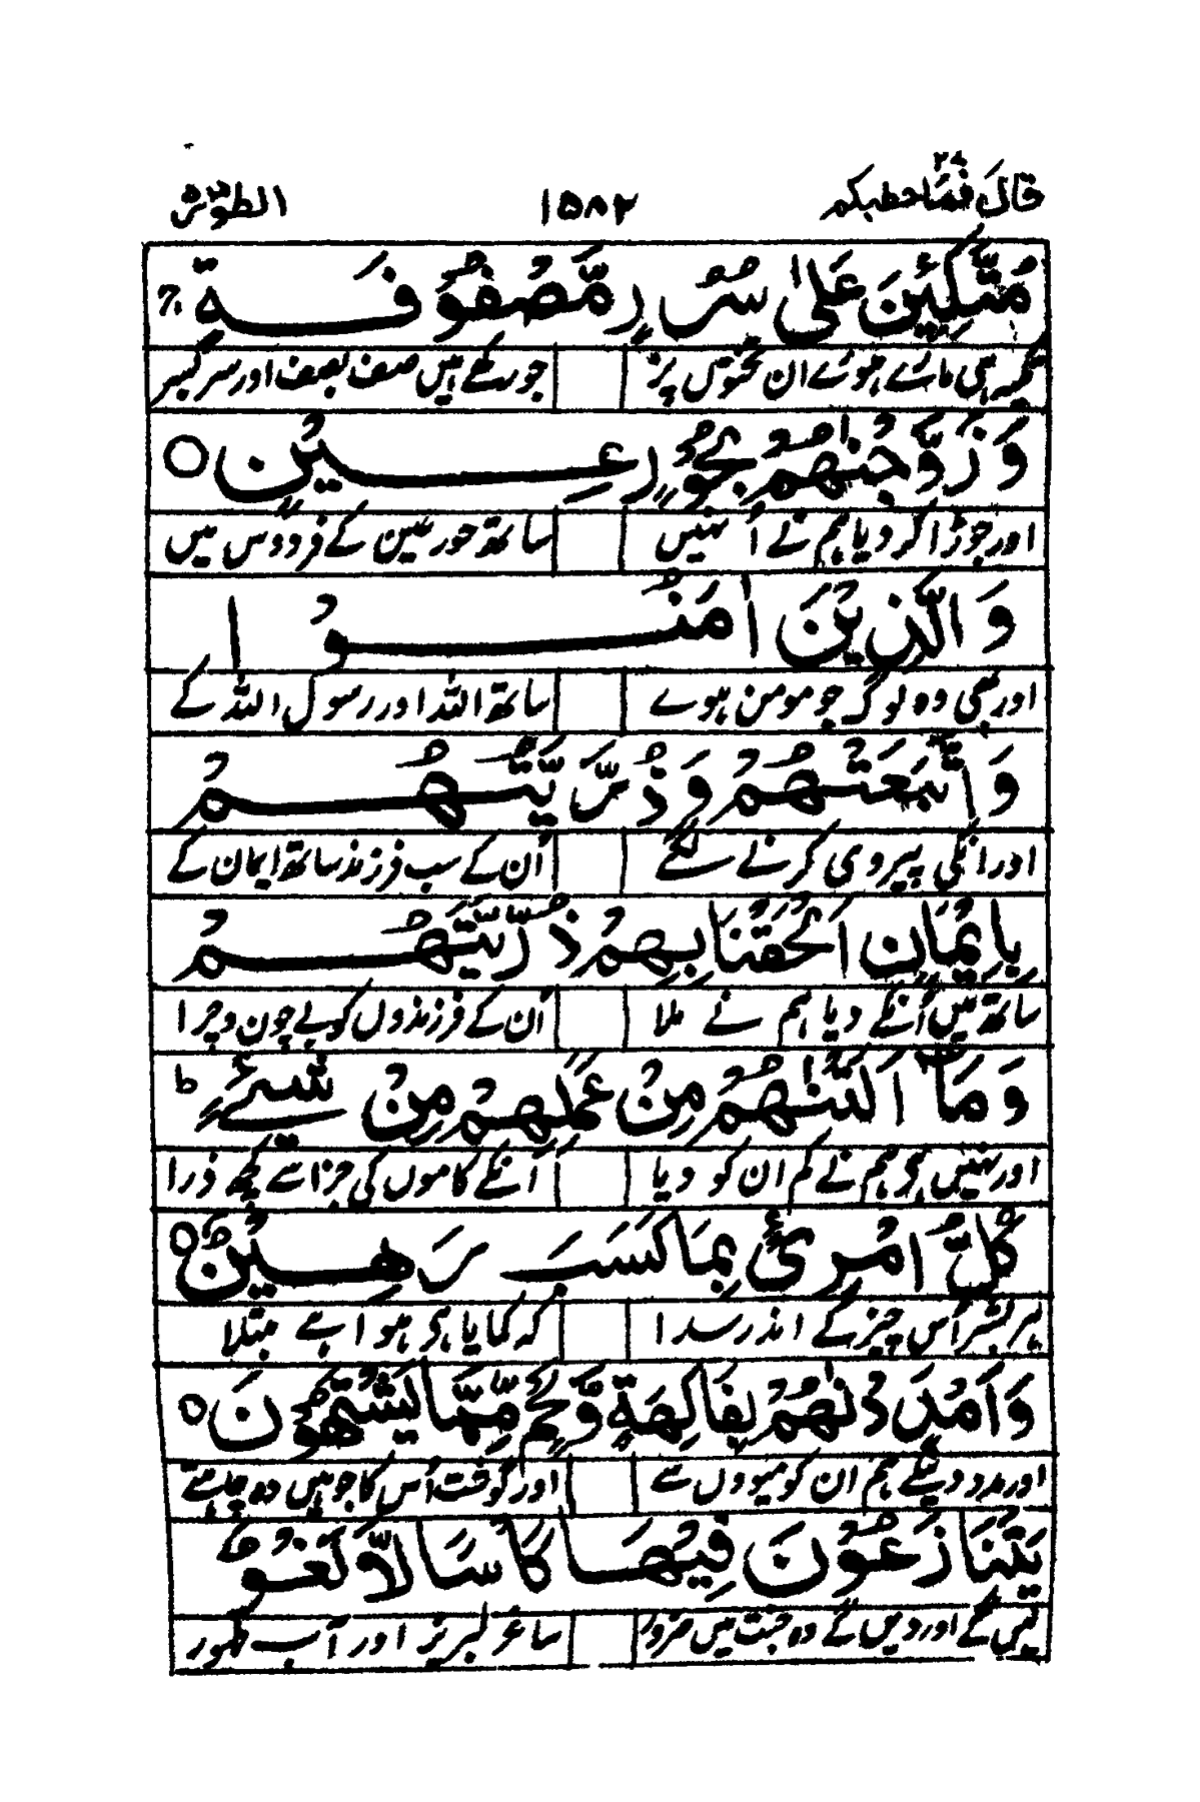 قال فما خطبكم ۲۷ ۱۵۸۲ الطور ۵۲
مُتَّكِئِينَ عَلَىٰ سُرُرٍ مَّصْفُوفَةٍ
تکیہ ہی مارے ہوئے ان تختوں پر جو رکھے ہیں صف بصف اور سر
وَزَوَّجْنٰهُمْ بِحُورٍ عِينٍ ○
اور جوڑا کر دیا ہم نے اُنہیں ساتھ حور عین کے فردوس میں
وَالَّذِينَ اٰمَنُوا
اور بھی وہ لوگ جو مومن ہوے ساتھ اللہ اور رسول اللہ کے
وَاتَّبَعَتْهُمْ وَذُرِّيَّتُهُمْ
اور انکی پیروی کرنے لگے اُن کے سب فرزند ساتھ ایمان کے
بِإِيْمَانٍ اَلْحَقْنَا بِهِمْ ذُرِّيَّتَهُمْ
ساتھ میں اُنکے دیا ہم نے ملا اُن کے فرزندوں کو بے چون و چرا
وَمَا اَلَتْنٰهُمْ مِنْ عَمَلِهِمْ مِنْ شَيْءٍ ط
اور نہیں ہی ہم نے کم ان کو دیا اُنکے کاموں کی جزا سے کچھ ذرا
كُلُّ امْرِئٍ بِمَا كَسَبَ رَهِينٌ ○
ہر بشر اُس چیز کے اندر سدا کہ کمایا ہی ہوا ہے مبتلا
وَاَمْدَدْنٰهُمْ بِفَاكِهَةٍ وَّلَحْمٍ مِّمَّا يَشْتَهُونَ ○
اور مدد دینگے ہم ان کو میووں سے اور گوشت اُس کا جو ہیں وہ چاہتے
يَتَنَازَعُونَ فِيهَا كَأْسًا لَّا لَغْوٌ
لیں گے اور دیں گے وہ جنت میں ضرور ساغر لبریز اور آب طہور